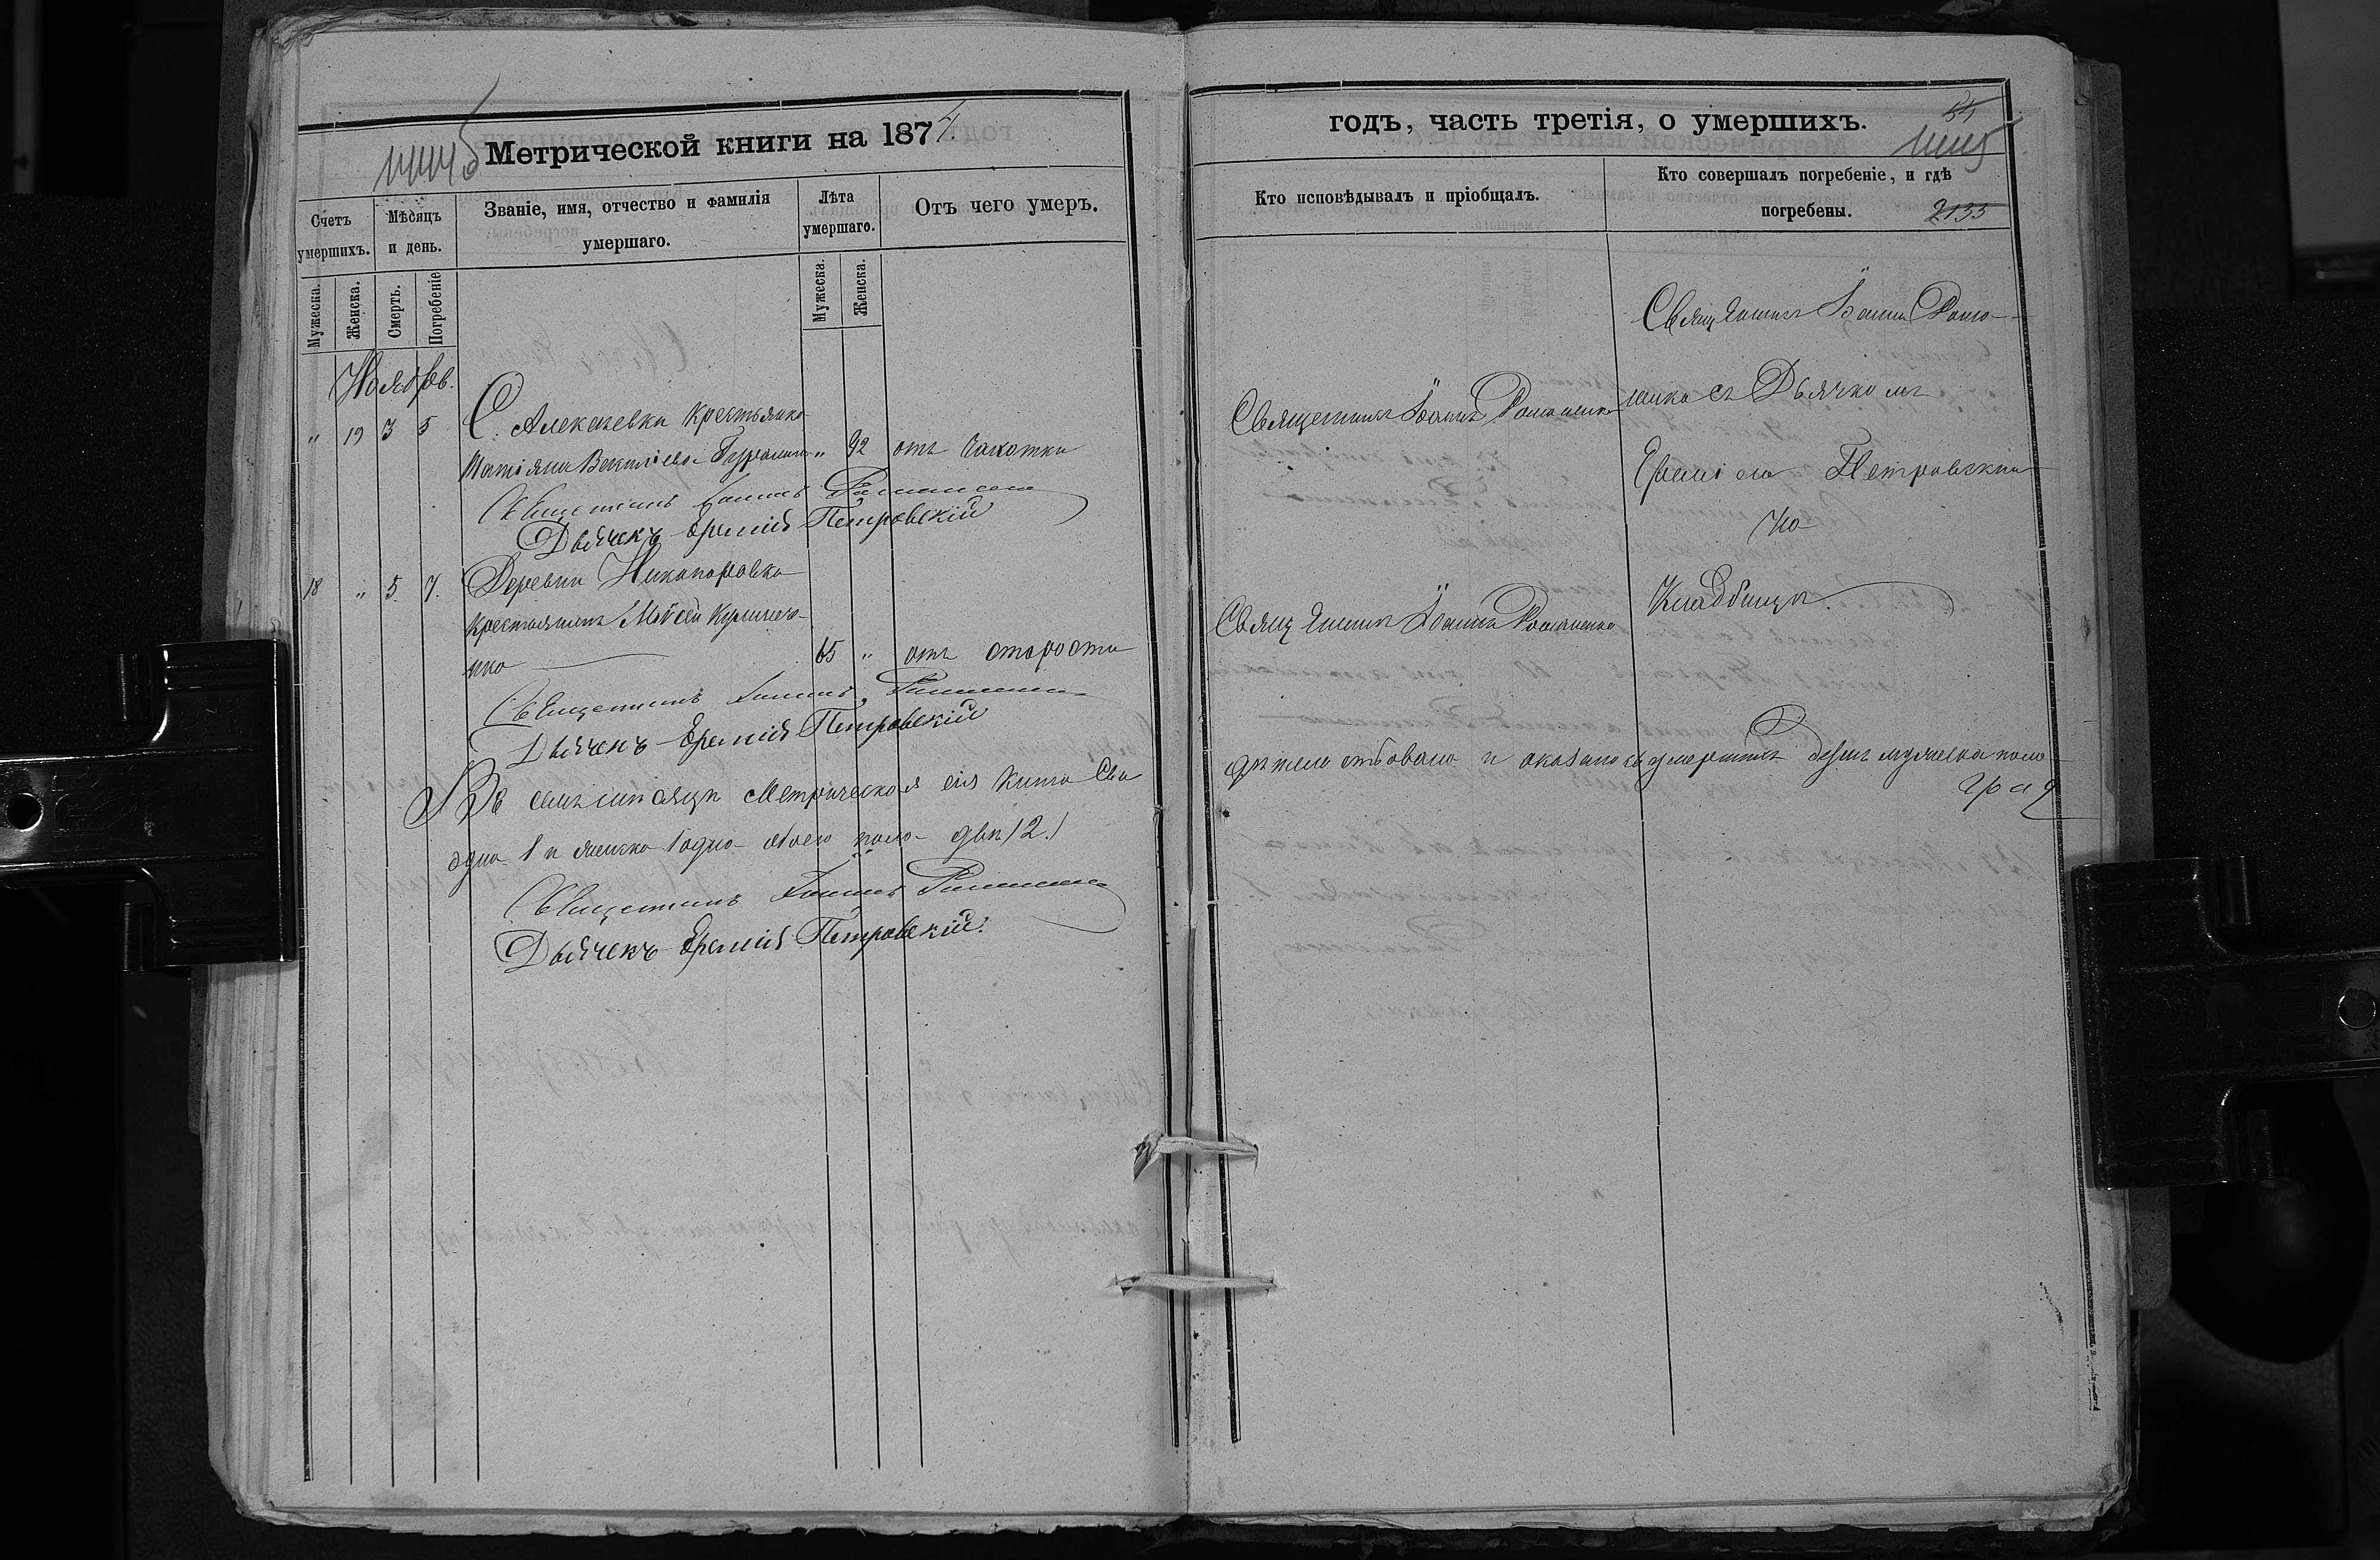 Метрической книги на 1874
Счетъ умершихъ.
Мѣсяцъ и день.
Званіе, имя, отчество и фамилія умершаго.
Лѣта умершаго.
Отъ чего умеръ.
Мужеска.
Женска.
Смерть.
Погребеніе
Мужеска.
Женска.
Ноябрь.
" 19 3 5 С. Алексѣевки Крестьянка
" отъ чахотки
Священникъ Іоаннъ Романенко
Дьячекъ Еремій Петровскій
18 " 5. 7. Деревни Никаноровка
Крестьянинъ Мойсей
65 " отъ старости
Священникъ Іоаннъ Романенко
Дьячекъ Еремій Петровскій
Въ семъ мѣсяцѣ Метрическая сія Книга Сви
одна 1 и женска 1 одна обоего пола двѣ (2.)
Священникъ Іоаннъ Романенко
Дьячекъ Еремій Петровскій.
годъ, часть третія, о умершихъ.
Кто исповѣдывалъ и пріобщалъ.
Кто совершалъ погребеніе, и гдѣ погребены.
2133
Священникъ Іоаннъ Рома-
Священникъ Іоаннъ Романенко
ненко съ Дьячкомъ
Ереміемъ Петровскимъ
На
Кладбищѣ.
Священникъ Іоаннъ Романенко
дѣтельствована и оказалось умершихъ душъ мужеска пола